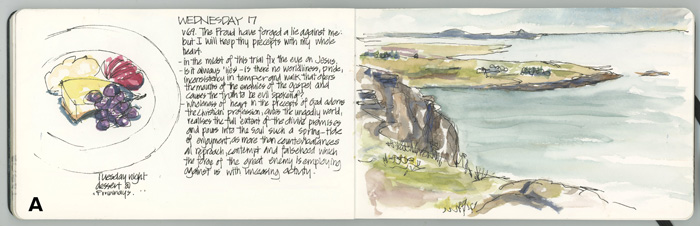 WEDNESDAY 17
V69. The Proud have forged a lie against me:
but I will keep thy precepts with my whole
heart.
- in the midst of this trial fix the eye on Jesus.
- is it always 'lies' - is there no worldliness, pride,
inconsistency in temper and walk that opens
the mouths of the enemies of the gospel and
causes the truth to be evil spoken of?
- wholeness of heart in the precepts of God adorns
the Christian profession, awes the ungodly world,
realises the full extent of the divine promises
and pours into the soul such a spring-tide
of enjoyment, as more than counterbalances
all reproach, contempt and falsehood which
the force of the great enemy is employing
against us with unceasing activity.
Tuesday night
dessert @
A